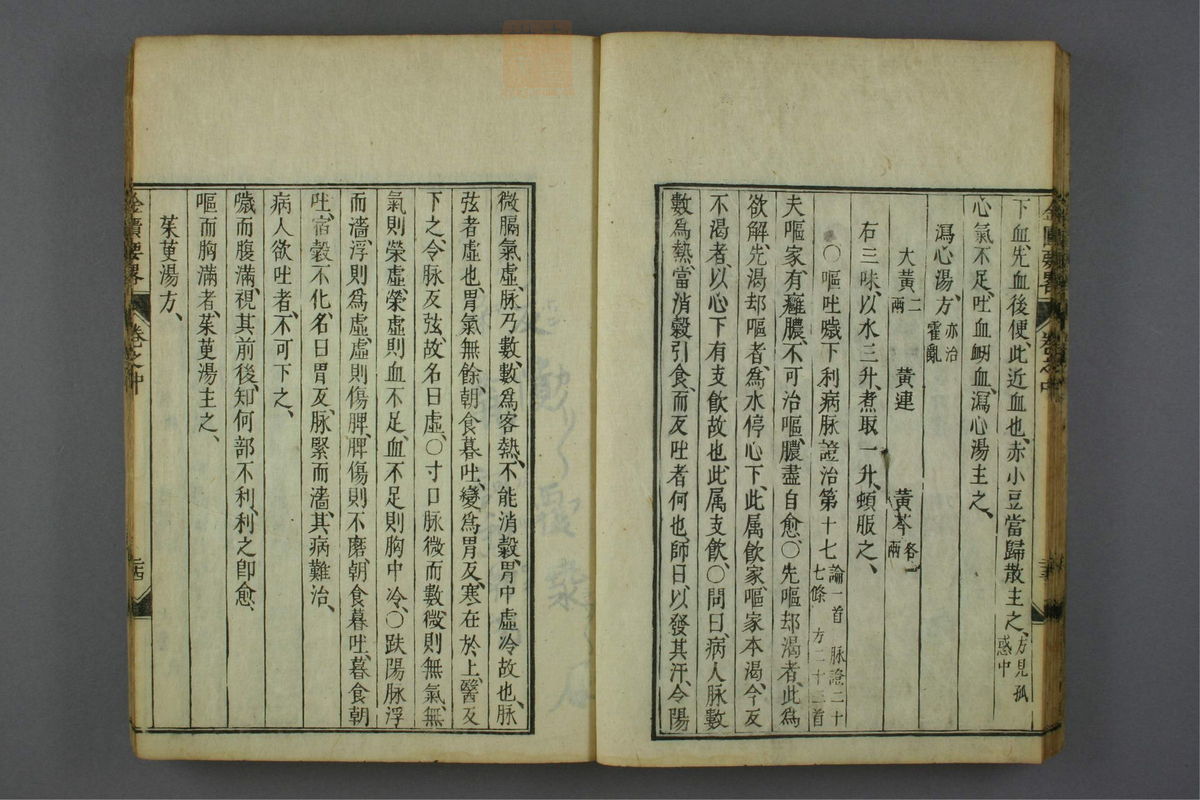 下血、先血後便、此近血也、赤小豆當歸散主之、方見孤惑中
心氣不足、吐血衂血、瀉心湯主之、
瀉心湯方、亦治霍亂
大黃二兩 黃連 黃芩各一兩
右三味、以水三升、煮取一升、頓服之、
〇嘔吐噦下利病脉證治第十七論一首 脉證二十七條 方二十三首
夫嘔家、有癰膿、不可治嘔、膿盡自愈、〇先嘔却渴者、此爲
欲解、先渴却嘔者、爲水停心下、此属飲家、嘔家本渴、今反
不渴者、以心下有支飲故也、此属支飲、〇問曰、病人脉數
數爲熱、當消穀引食、而反吐者何也、師曰、以發其汗、令陽
微膈氣虛、脉乃數、數爲客熱、不能消穀、胃中虛冷故也、脉
弦者虛也、胃氣無餘、朝食暮吐、變爲胃反、寒在於上、醫反
下之、令脉反弦、故名曰虛、〇寸口脉微而數、微則無氣、無
氣則榮虛、榮虛則血不足、血不足則胸中冷、〇趺陽脉浮
而濇、浮則爲虛、虛則傷脾、脾傷則不磨、朝食暮吐、暮食朝
吐、宿穀不化、名曰胃反、脉緊而濇、其病難治、
病人欲吐者、不可下之、
噦而腹滿、視其前後、知何部不利、利之卽愈、
嘔而胸滿者、茱萸湯主之、
茱萸湯方、
金匱要畧 卷之中 二十四